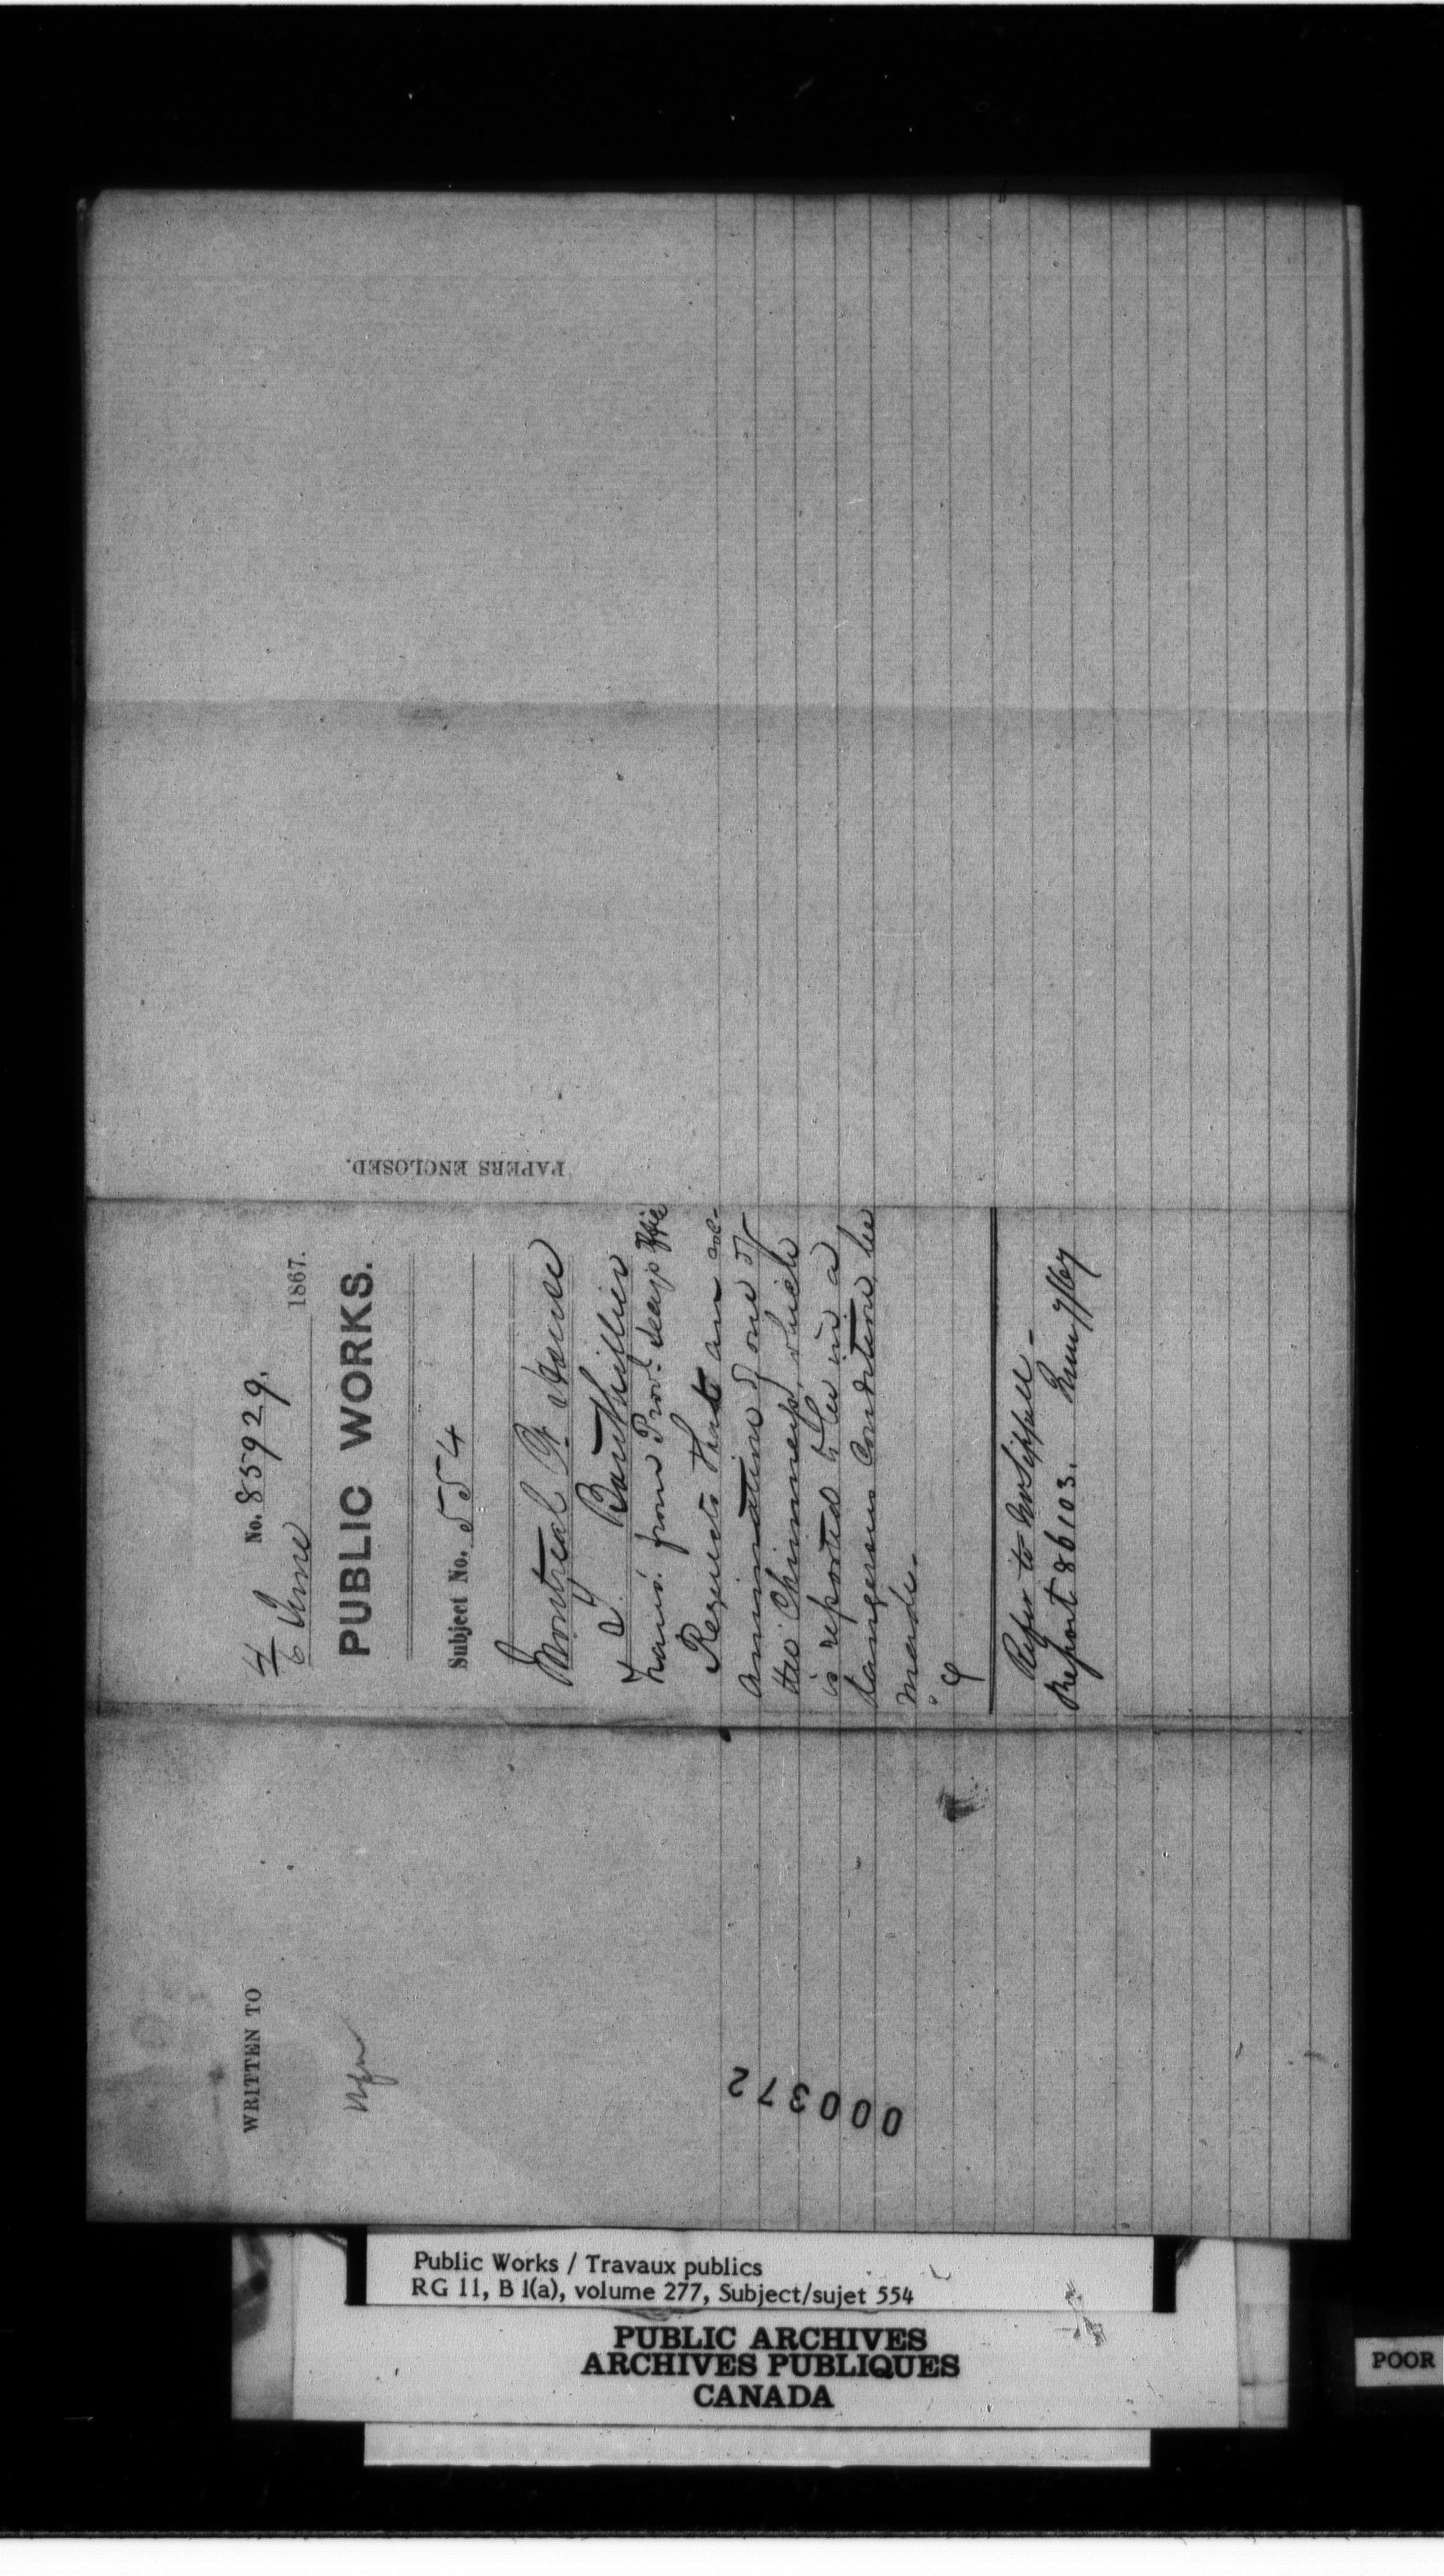 No. 85929.
4/6 June 1867.
PUBLIC WORKS.
Subject No. 554
Montreal Ct. House
T Bouthillier
Trans. from Prov. Secys Office
Requests that an ex-
amination of one of
the Chimneys, which
is reported to be in a
dangerous Condition, be
made.
Refer to Mr Sippell -
Report 86103. June 7/67
PAPERS ENCLOSED.
WRITTEN TO
000372
Public Works / Travaux publics
RG 11, B 1(a), volume 277, Subject/sujet 554
PUBLIC ARCHIVES
ARCHIVES PUBLIQUES
CANADA
POOR